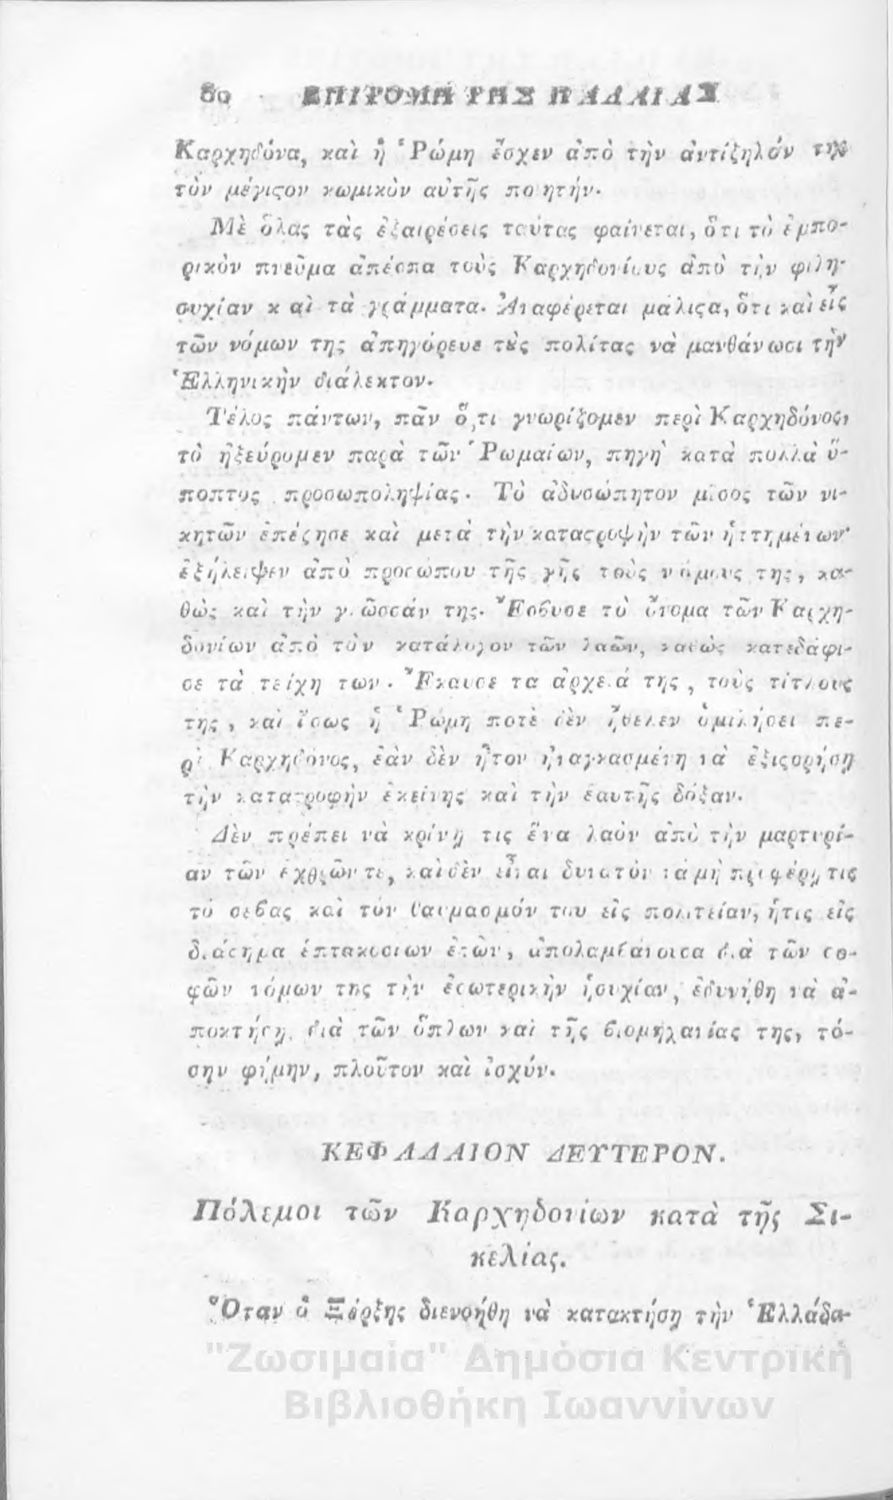 80 ΕΠΙΤΟΜΗ ΤΗΣ ΠΑΛΑΙΑΣ
Καρχηδόνα, καὶ ἡ Ῥώμη ἔσχεν ἀπὸ τὴν ἀντίζηλόν της
τὸν μέγιϛον κωμικὸν αὐτῆς ποιητήν.
Μὲ ὅλας τὰς ἐξαιρέσεις ταύτας φαίνεται, ὅτι τὸ ἐμπο-
ρικὸν πνεῦμα ἀπέσπα τοὺς Καρχηδονίους ἀπὸ τὴν φιλη-
συχίαν καὶ τὰ γράμματα. Ἀναφέρεται μάλιϛα, ὅτι καὶ εἷς
τῶν νόμων της ἀπηγόρευε τὲς πολίτας νὰ μανθάνωσι τὴν
Ἑλληνικὴν διάλεκτον.
Τέλος πάντων, πᾶν ὅ,τι γνωρίζομεν περὶ Καρχηδόνος,
τὸ ἠξεύρομεν παρὰ τῶν Ῥωμαίων, πηγὴ κατὰ πολλὰ ὕ-
ποπτος προσωποληψίας. Τὸ ἀδυσώπητον μῖσος τῶν νι-
κητῶν ἐπέζησε καὶ μετὰ τὴν καταϛροφὴν τῶν ἡττημένων·
ἐξήλειψεν ἀπὸ προσώπου τῆς γῆς τοὺς νόμους της, κα-
θὼς καὶ τὴν γλῶσσάν της. Ἔσβυσε τὸ ὄνομα τῶν Καρχη-
δονίων ἀπὸ τὸν κατάλογον τῶν λαῶν, καθὼς κατεδάφι-
σε τὰ τείχη των. Ἔκαυσε τα ἀρχεῖά της, τοὺς τίτλους
της, καὶ ἴσως ἡ Ῥώμη ποτὲ δὲν ἤθελεν ὁμιλήσει πε-
ρὶ Καρχηδόνος, ἐὰν δὲν ἦτον ἠναγκασμένη νὰ ἐξιϛορήσῃ
τὴν καταϛροφὴν ἐκείνης καὶ τὴν ἑαυτῆς δόξαν.
Δὲν πρέπει νὰ κρίνῃ τις ἕνα λαὸν ἀπὸ τὴν μαρτυρί-
αν τῶν ἐχθρῶν τε, καὶ δὲν εἶναι δυνατὸν νὰ μὴ προφέρῃ τις
τὸ σέβας καὶ τὸν θαυμασμόν του εἰς πολιτείαν, ἥτις εἰς
διάϛημα ἑπτακοσίων ἐτῶν, ἀπολαμβάνουσα διὰ τῶν σο-
φῶν νόμων της τὴν ἐσωτερικὴν ἡσυχίαν, ἐδυνήθη νὰ ἀ-
ποκτήσῃ διὰ τῶν ὅπλων καὶ τῆς βιομηχανίας της, τό-
σην φήμην, πλοῦτον καὶ ἰσχύν.
ΚΕΦΑΛΑΙΟΝ ΔΕΥΤΕΡΟΝ.
Πόλεμοι τῶν Καρχηδονίων κατὰ τῆς Σι-
κελίας.
Ὅταν ὁ Ξέρξης διενοήθη νὰ κατακτήσῃ τὴν Ἑλλάδα-
"Ζωσιμαία" Δημόσια Κεντρική
Βιβλιοθήκη Ιωαννίνων